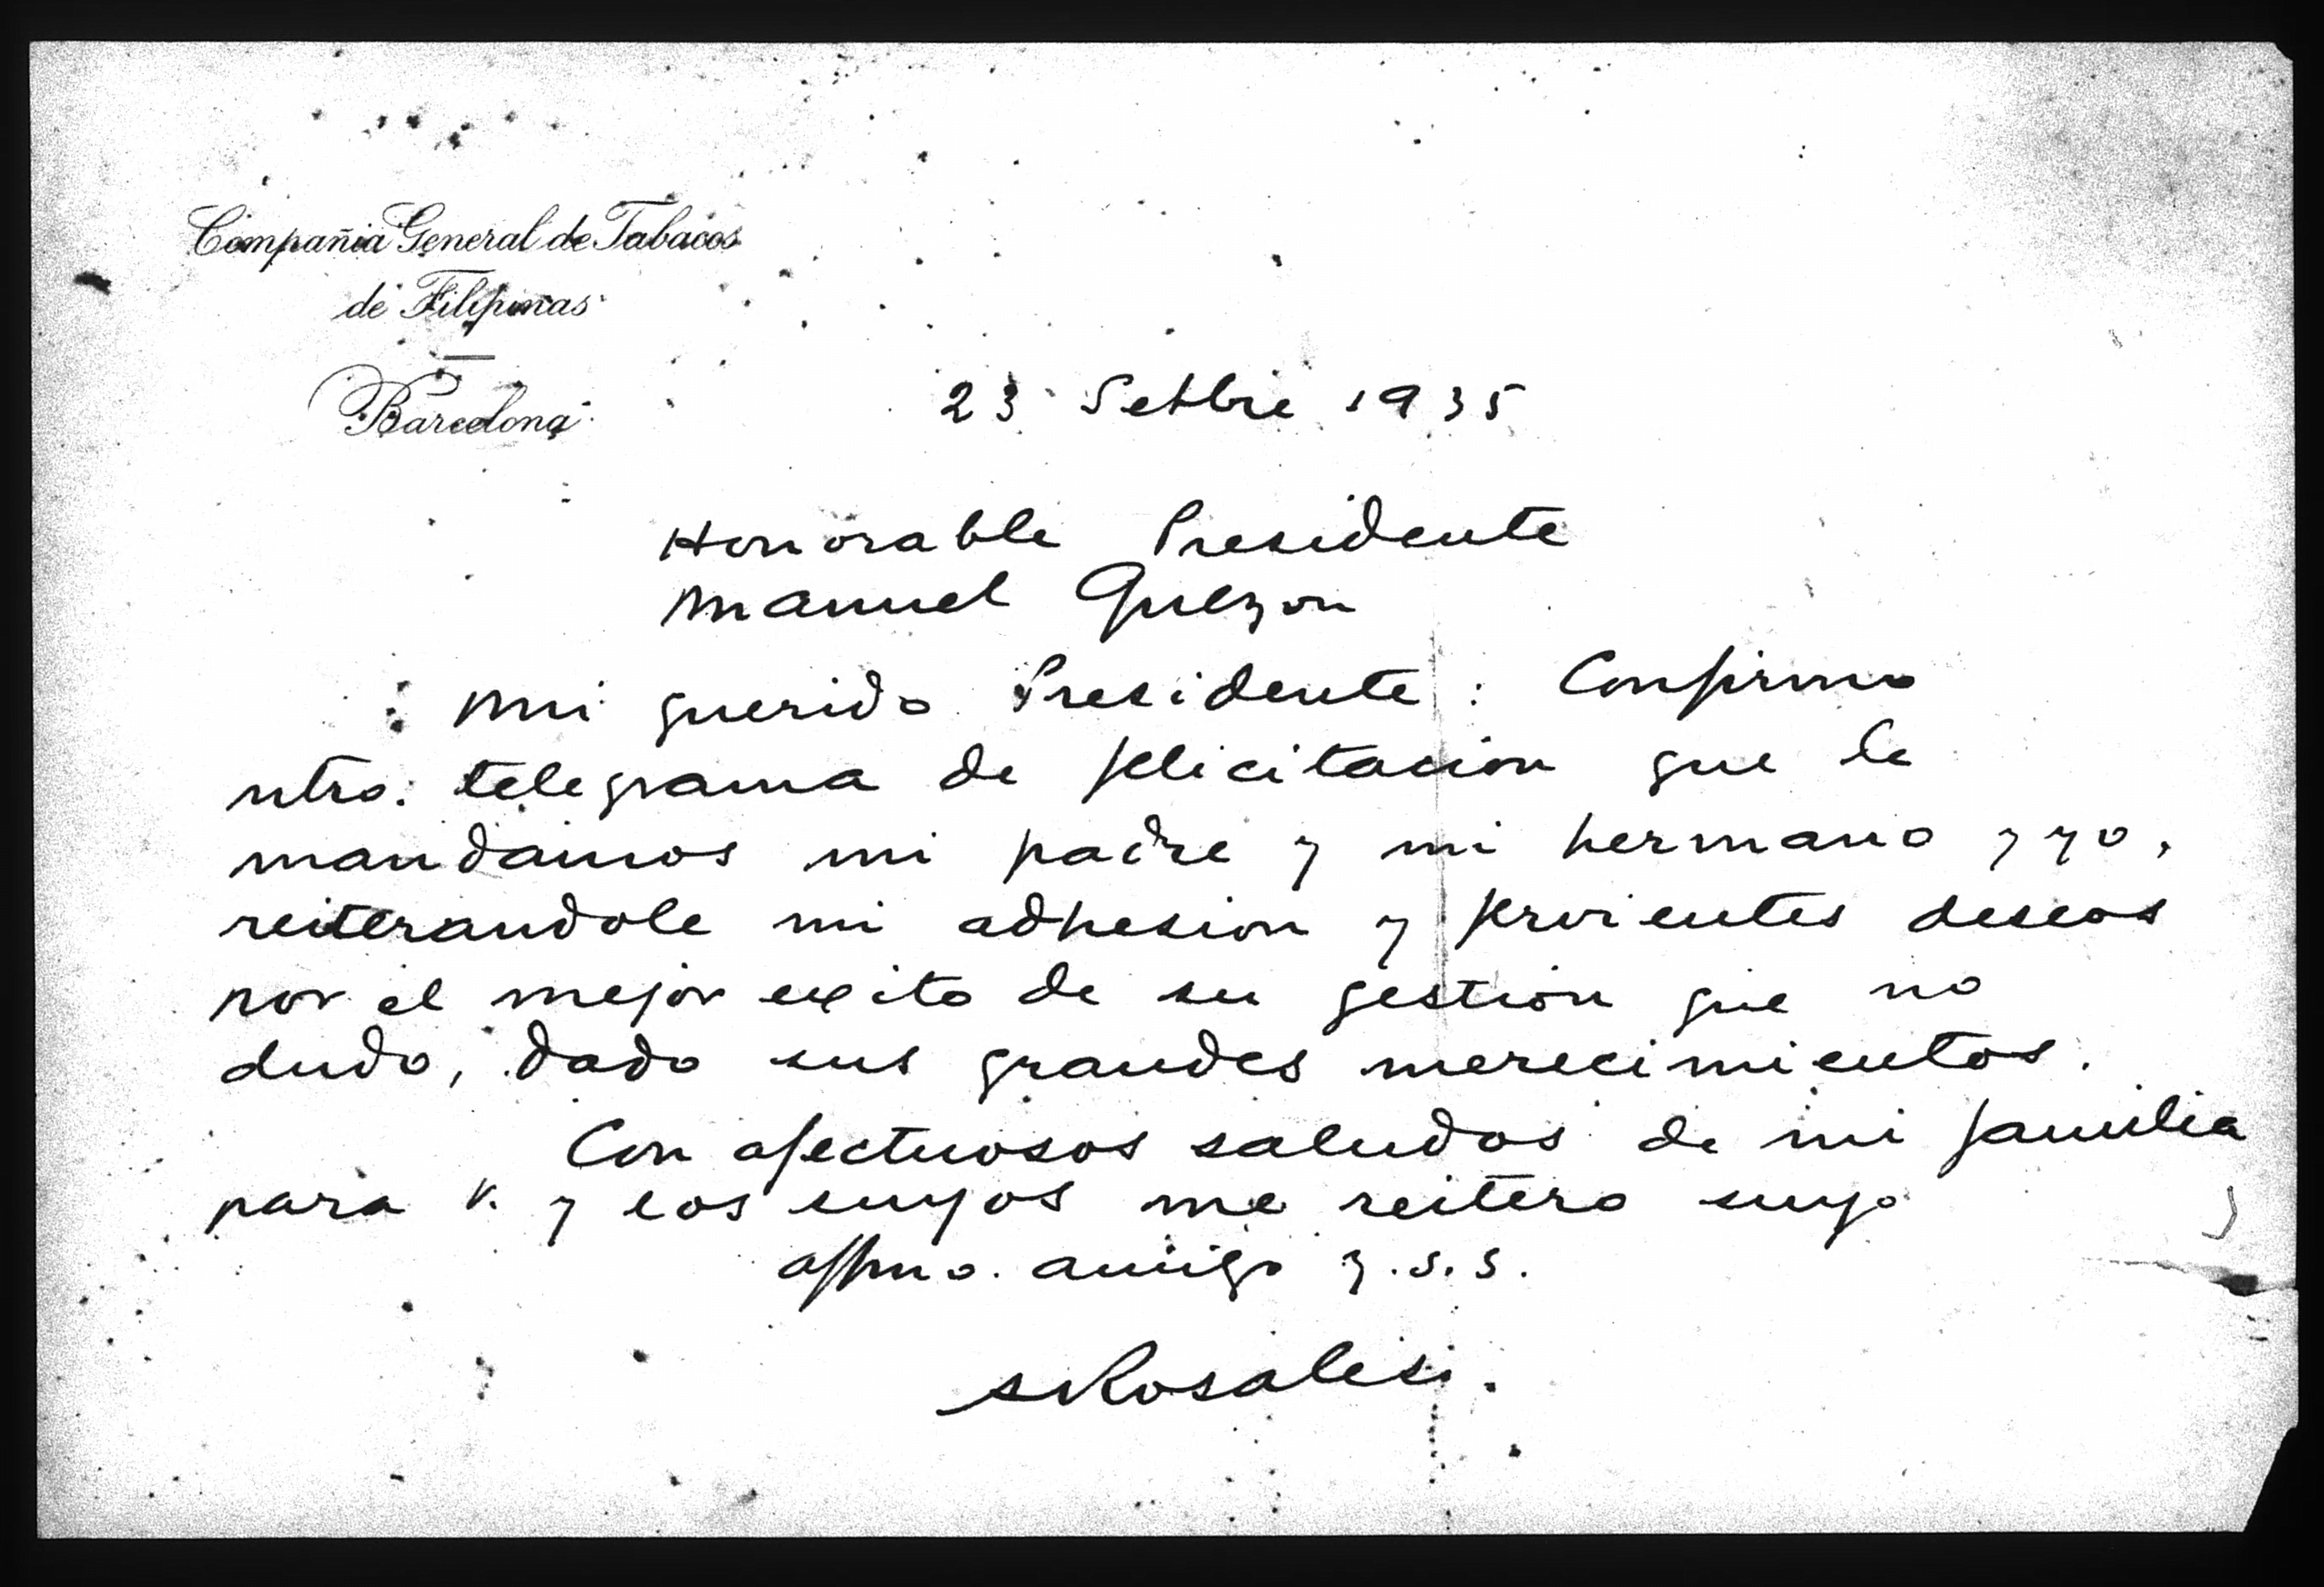 Compañia General de Tabacos
de Filipinas
Barcelona
23 Setbre 1935
Honorable Presidente
Manuel Quezon
Mi querido Presidente: Confirmo
ntro. telegrama de felicitacion que le
mandamos mi padre y mi hermano y yo,
reiterandole mi adhesion y fervientes deseos
por el mejor exito de su gestion que no
dudo, dado sus grandes merecimientos.
Con afectuosos saludos de mi familia
para V. y los suyos me reitero suyo
affmo. amigo y.s.s.